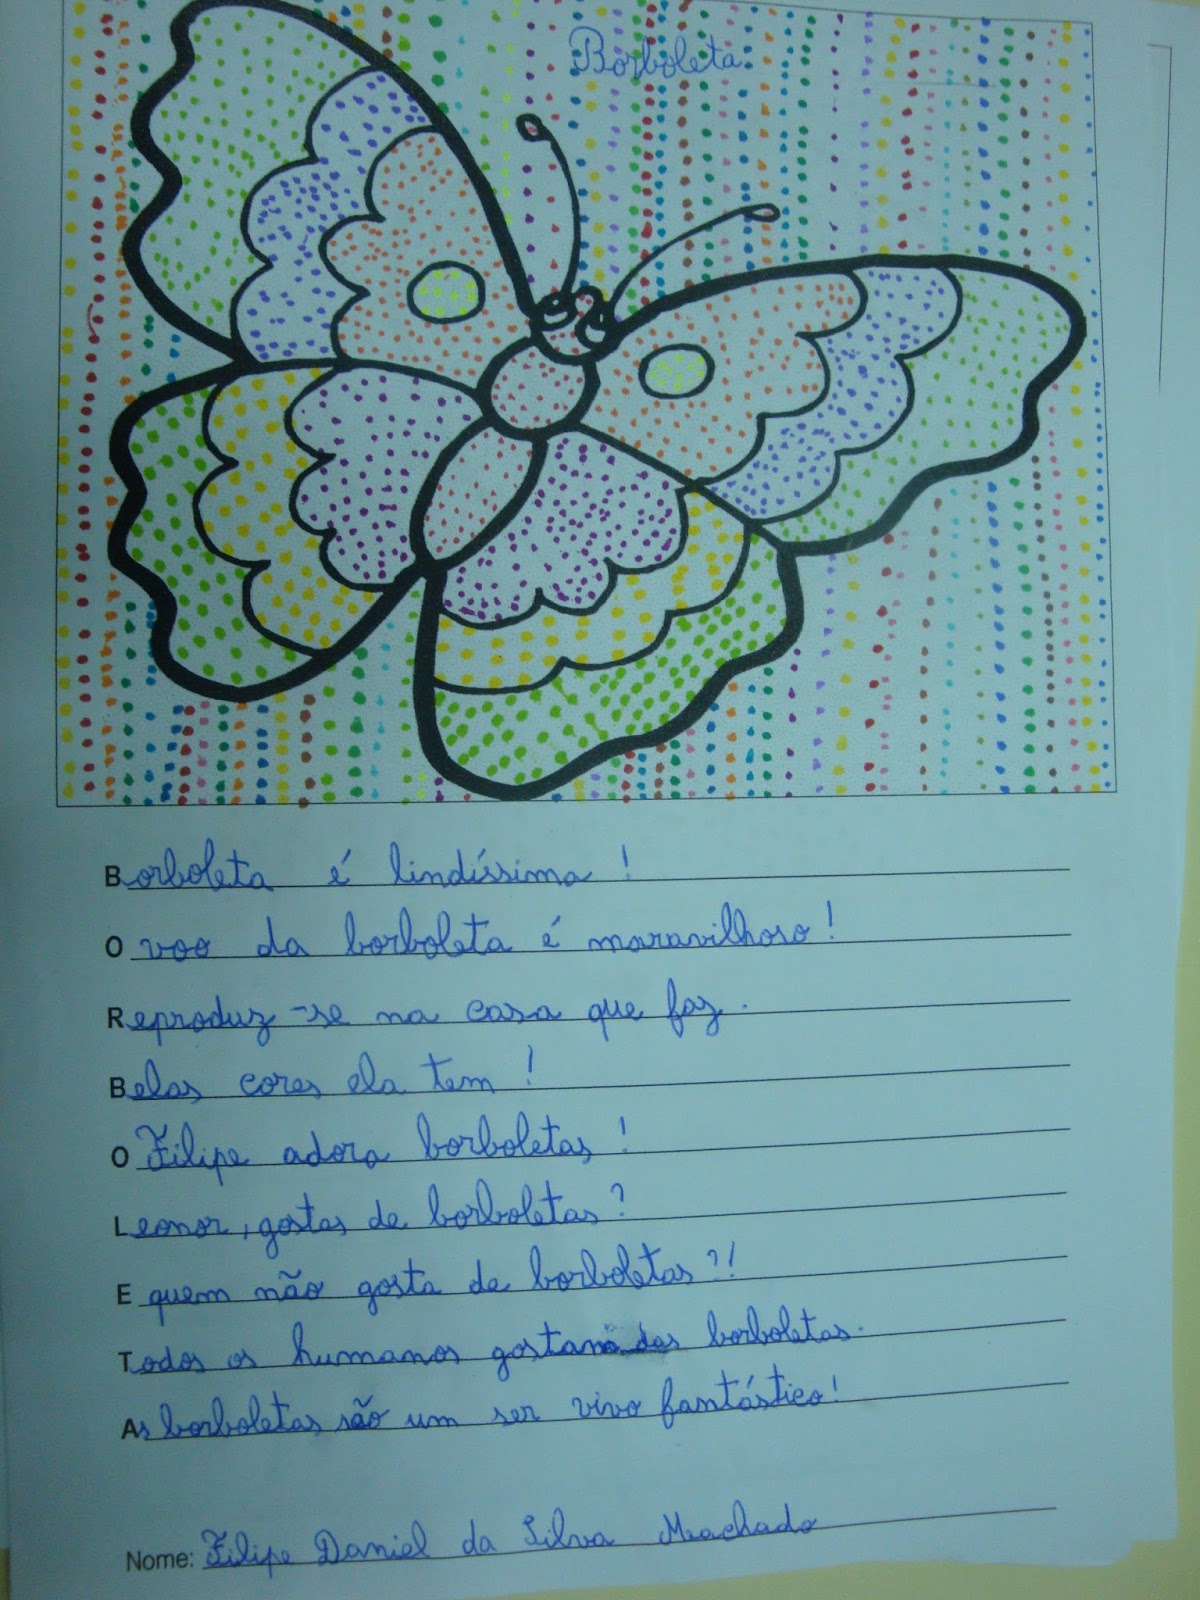 Borboleta
Borboleta é lindíssima!
O voo da borboleta é maravilhoso!
Reproduz-se na casa que faz.
Belas cores ela tem!
O Filipe adora borboletas!
Leonor, gostas de borboletas?
E quem não gosta de borboletas?!
Todos os humanos gostam das borboletas.
As borboletas são um ser vivo fantástico!
Nome: Filipe Daniel da Silva Machado